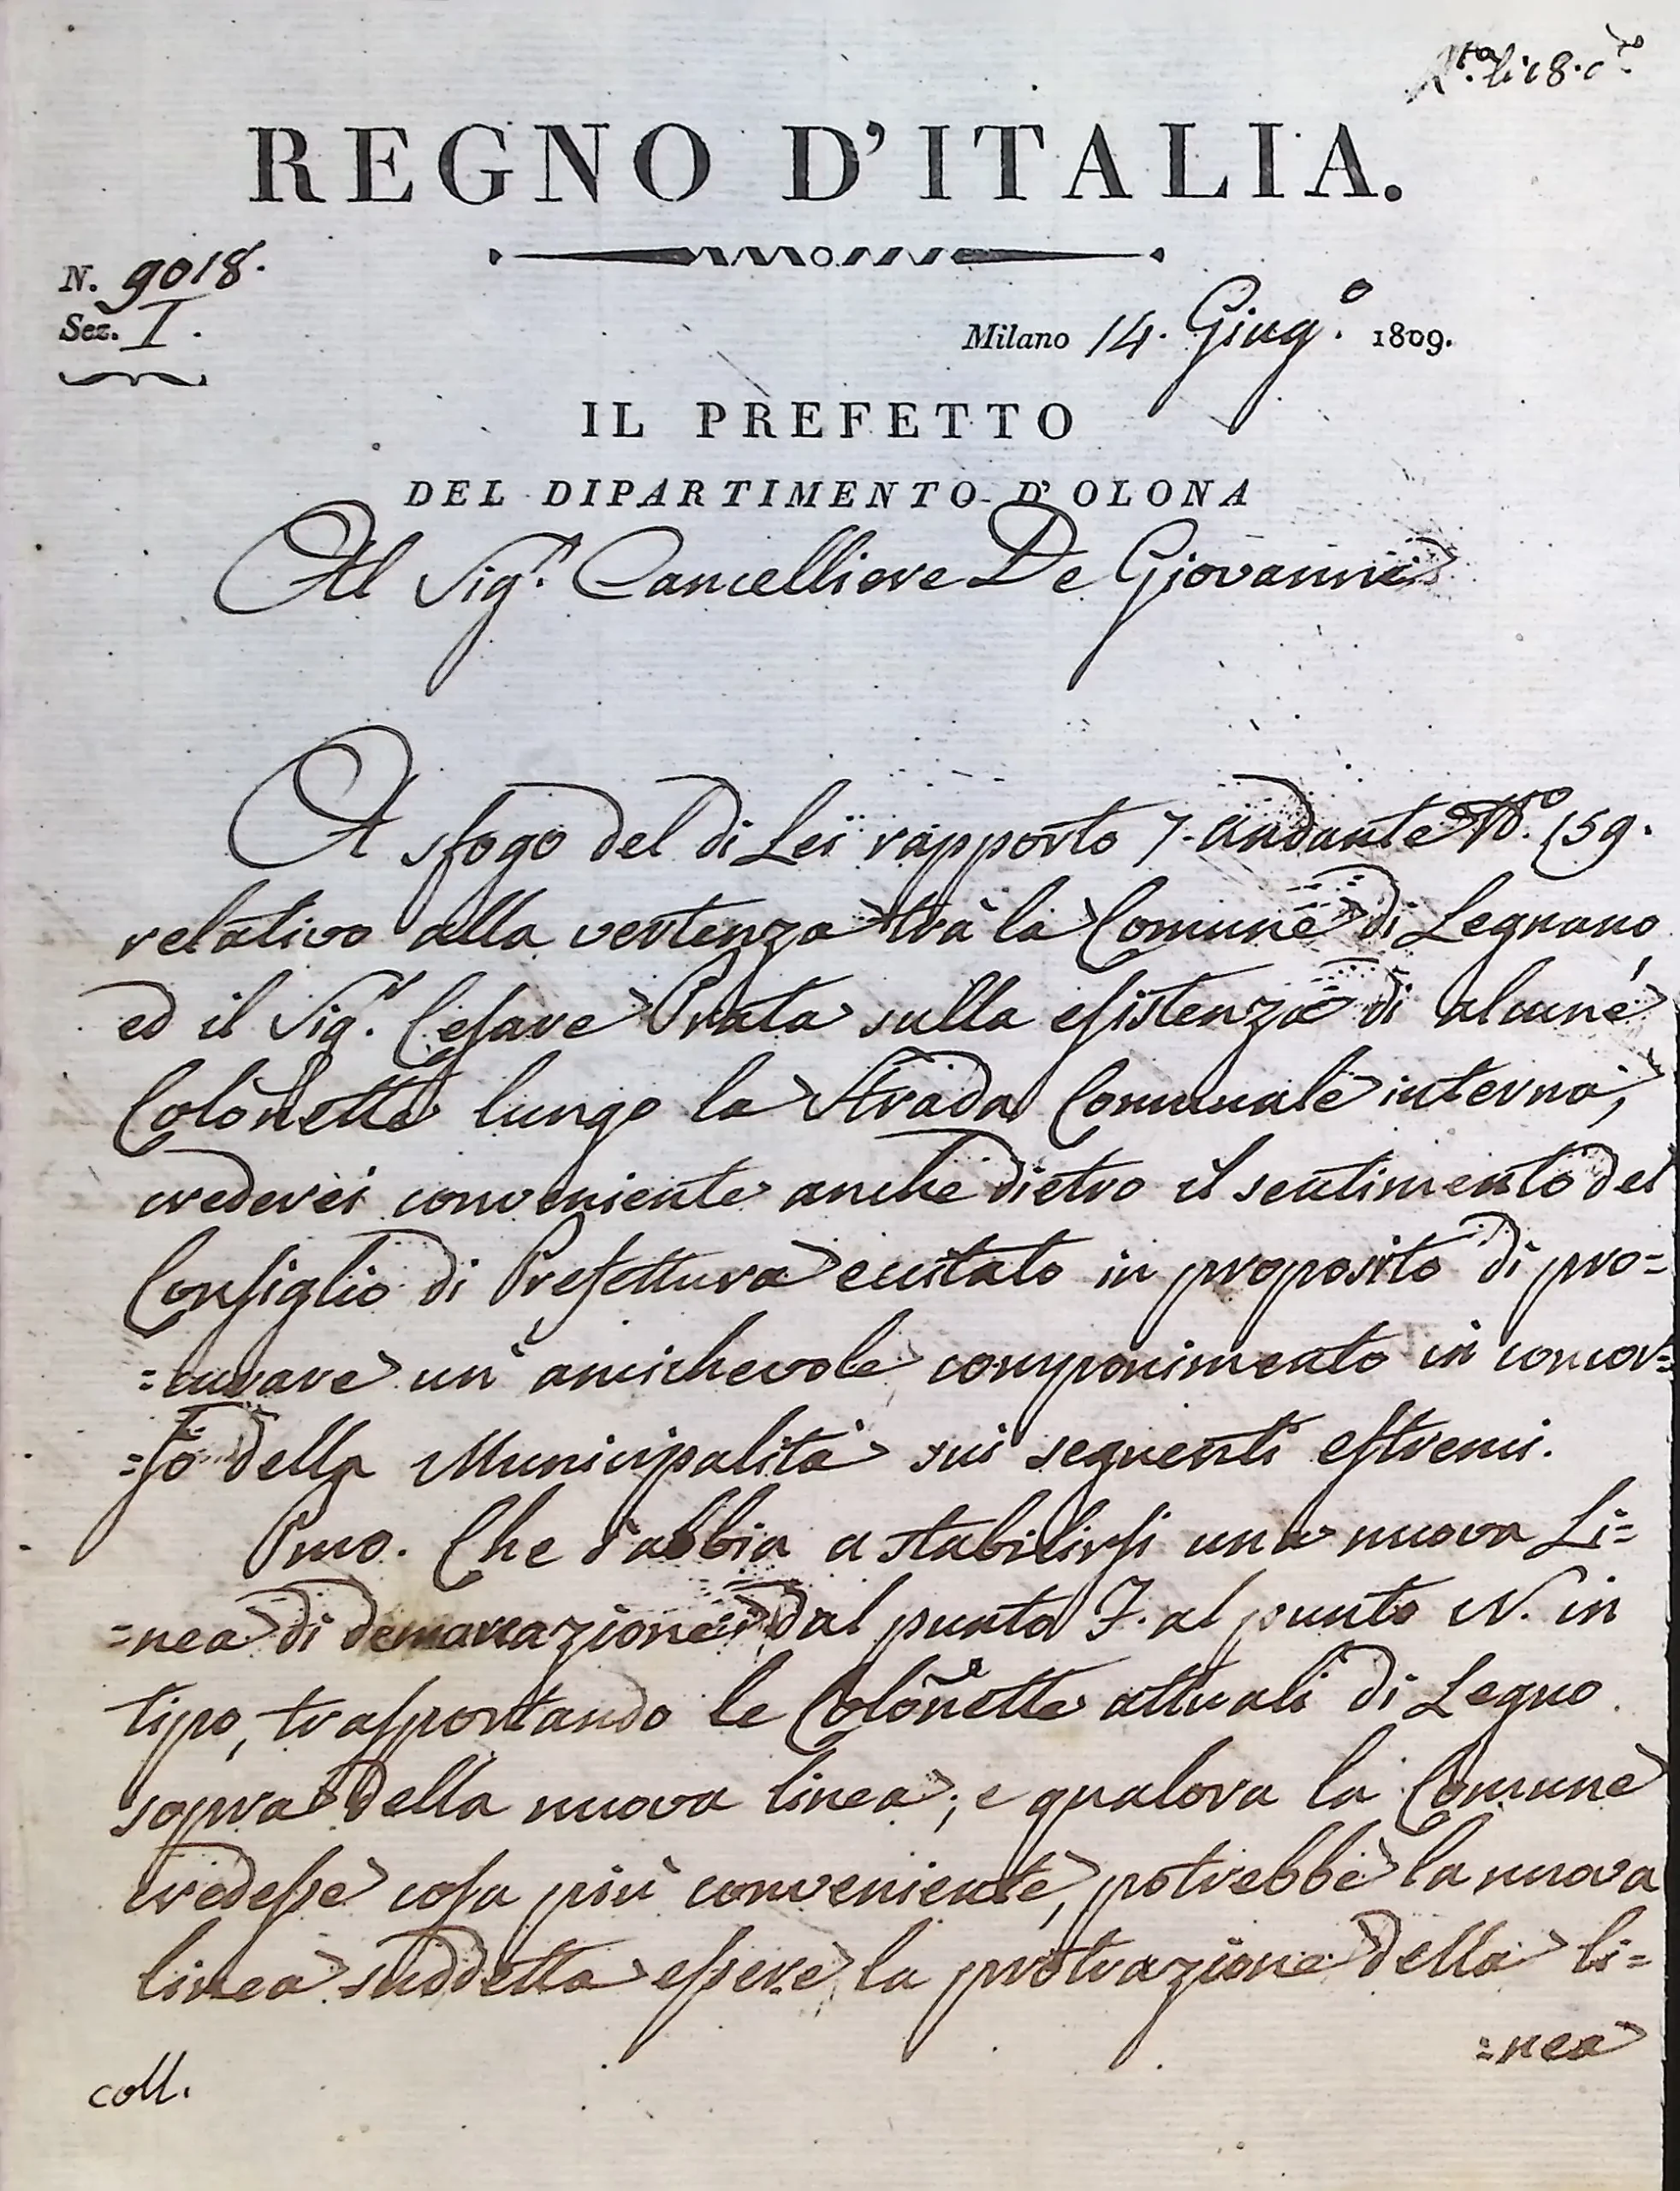 li 18. d.to
REGNO D'ITALIA.
N. 9018.
Sez. I.
Milano 14. Giug.o 1809.
IL PREFETTO
DEL DIPARTIMENTO D'OLONA
Al Sig.r Cancelliere De Giovanni
A sfogo del di Lei rapporto 7. andante N.o 159.
relativo alla vertenza trà la Comune di Legnano,
ed il Sig.r Cesare Prata sulla esistenza di alcune
Coloñette lungo la Strada Comunale interna,
crederei conveniente anche dietro il sentimento del
Consiglio di Prefettura eccitato in proposito di pro=
=curare un' amichevole componimento in concor=
=so della Municipalità sui seguenti estremi.
Pmo. Che s'abbia a stabilirsi una nuova Li=
=nea di demarcazione dal punto I. al punto N. in
tipo, trasportando le Coloñette attuali di Legno
sopra della nuova linea; e qualora la Comune
credesse cosa più conveniente, potrebbe la nuova
linea suddetta essere la protrazione della li=
=nea
coll.